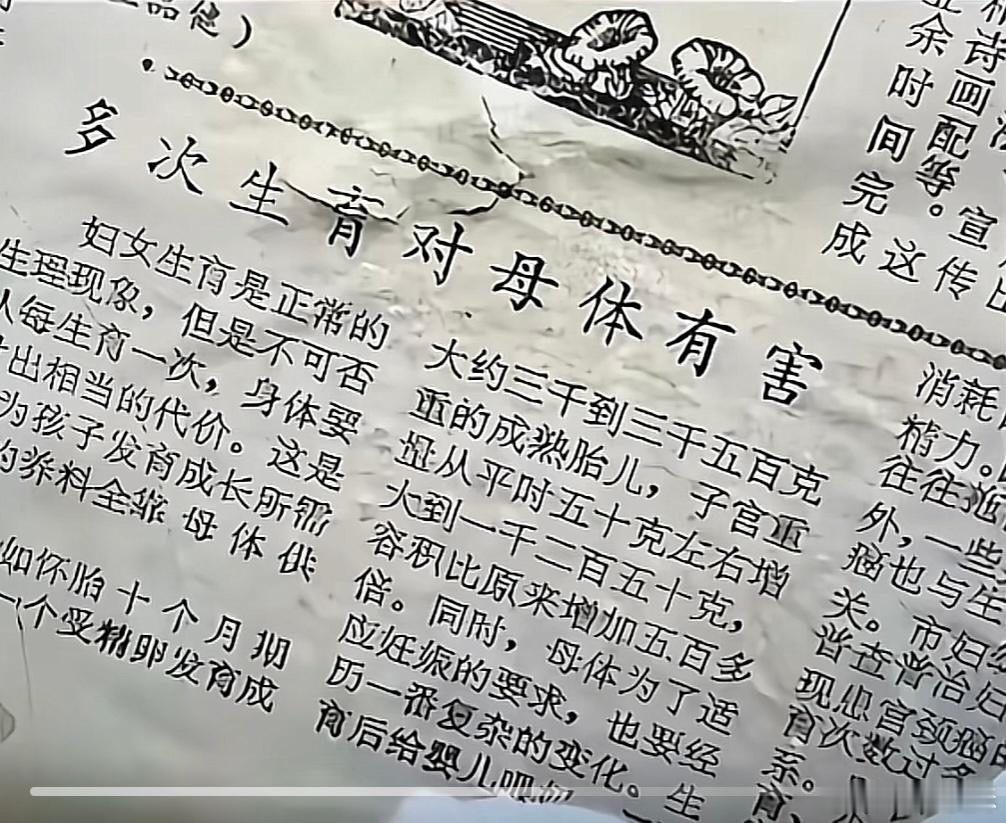 品德）
多次生育对母体有害
妇女生育是正常的
生理现象，但是不可否
认每生育一次，身体要
付出相当的代价。这是
为孩子发育成长所需
的养料全靠母体供
如怀胎十个月期
一个受精卵发育成
大约三千到三千五百克
重的成熟胎儿，子宫重
量从平时五十克左右增
大到一千二百五十克，
容积比原来增加五百多
倍。同时，母体为了适
应妊娠的要求，也要经
历一番复杂的变化。生
育后给婴儿
消耗
精力。
往往
外，一些
癌也与生
关。市妇
普查普治
现患宫颈癌
育次数过多
系。
育、
诗画配等。宣传
余时间完成这